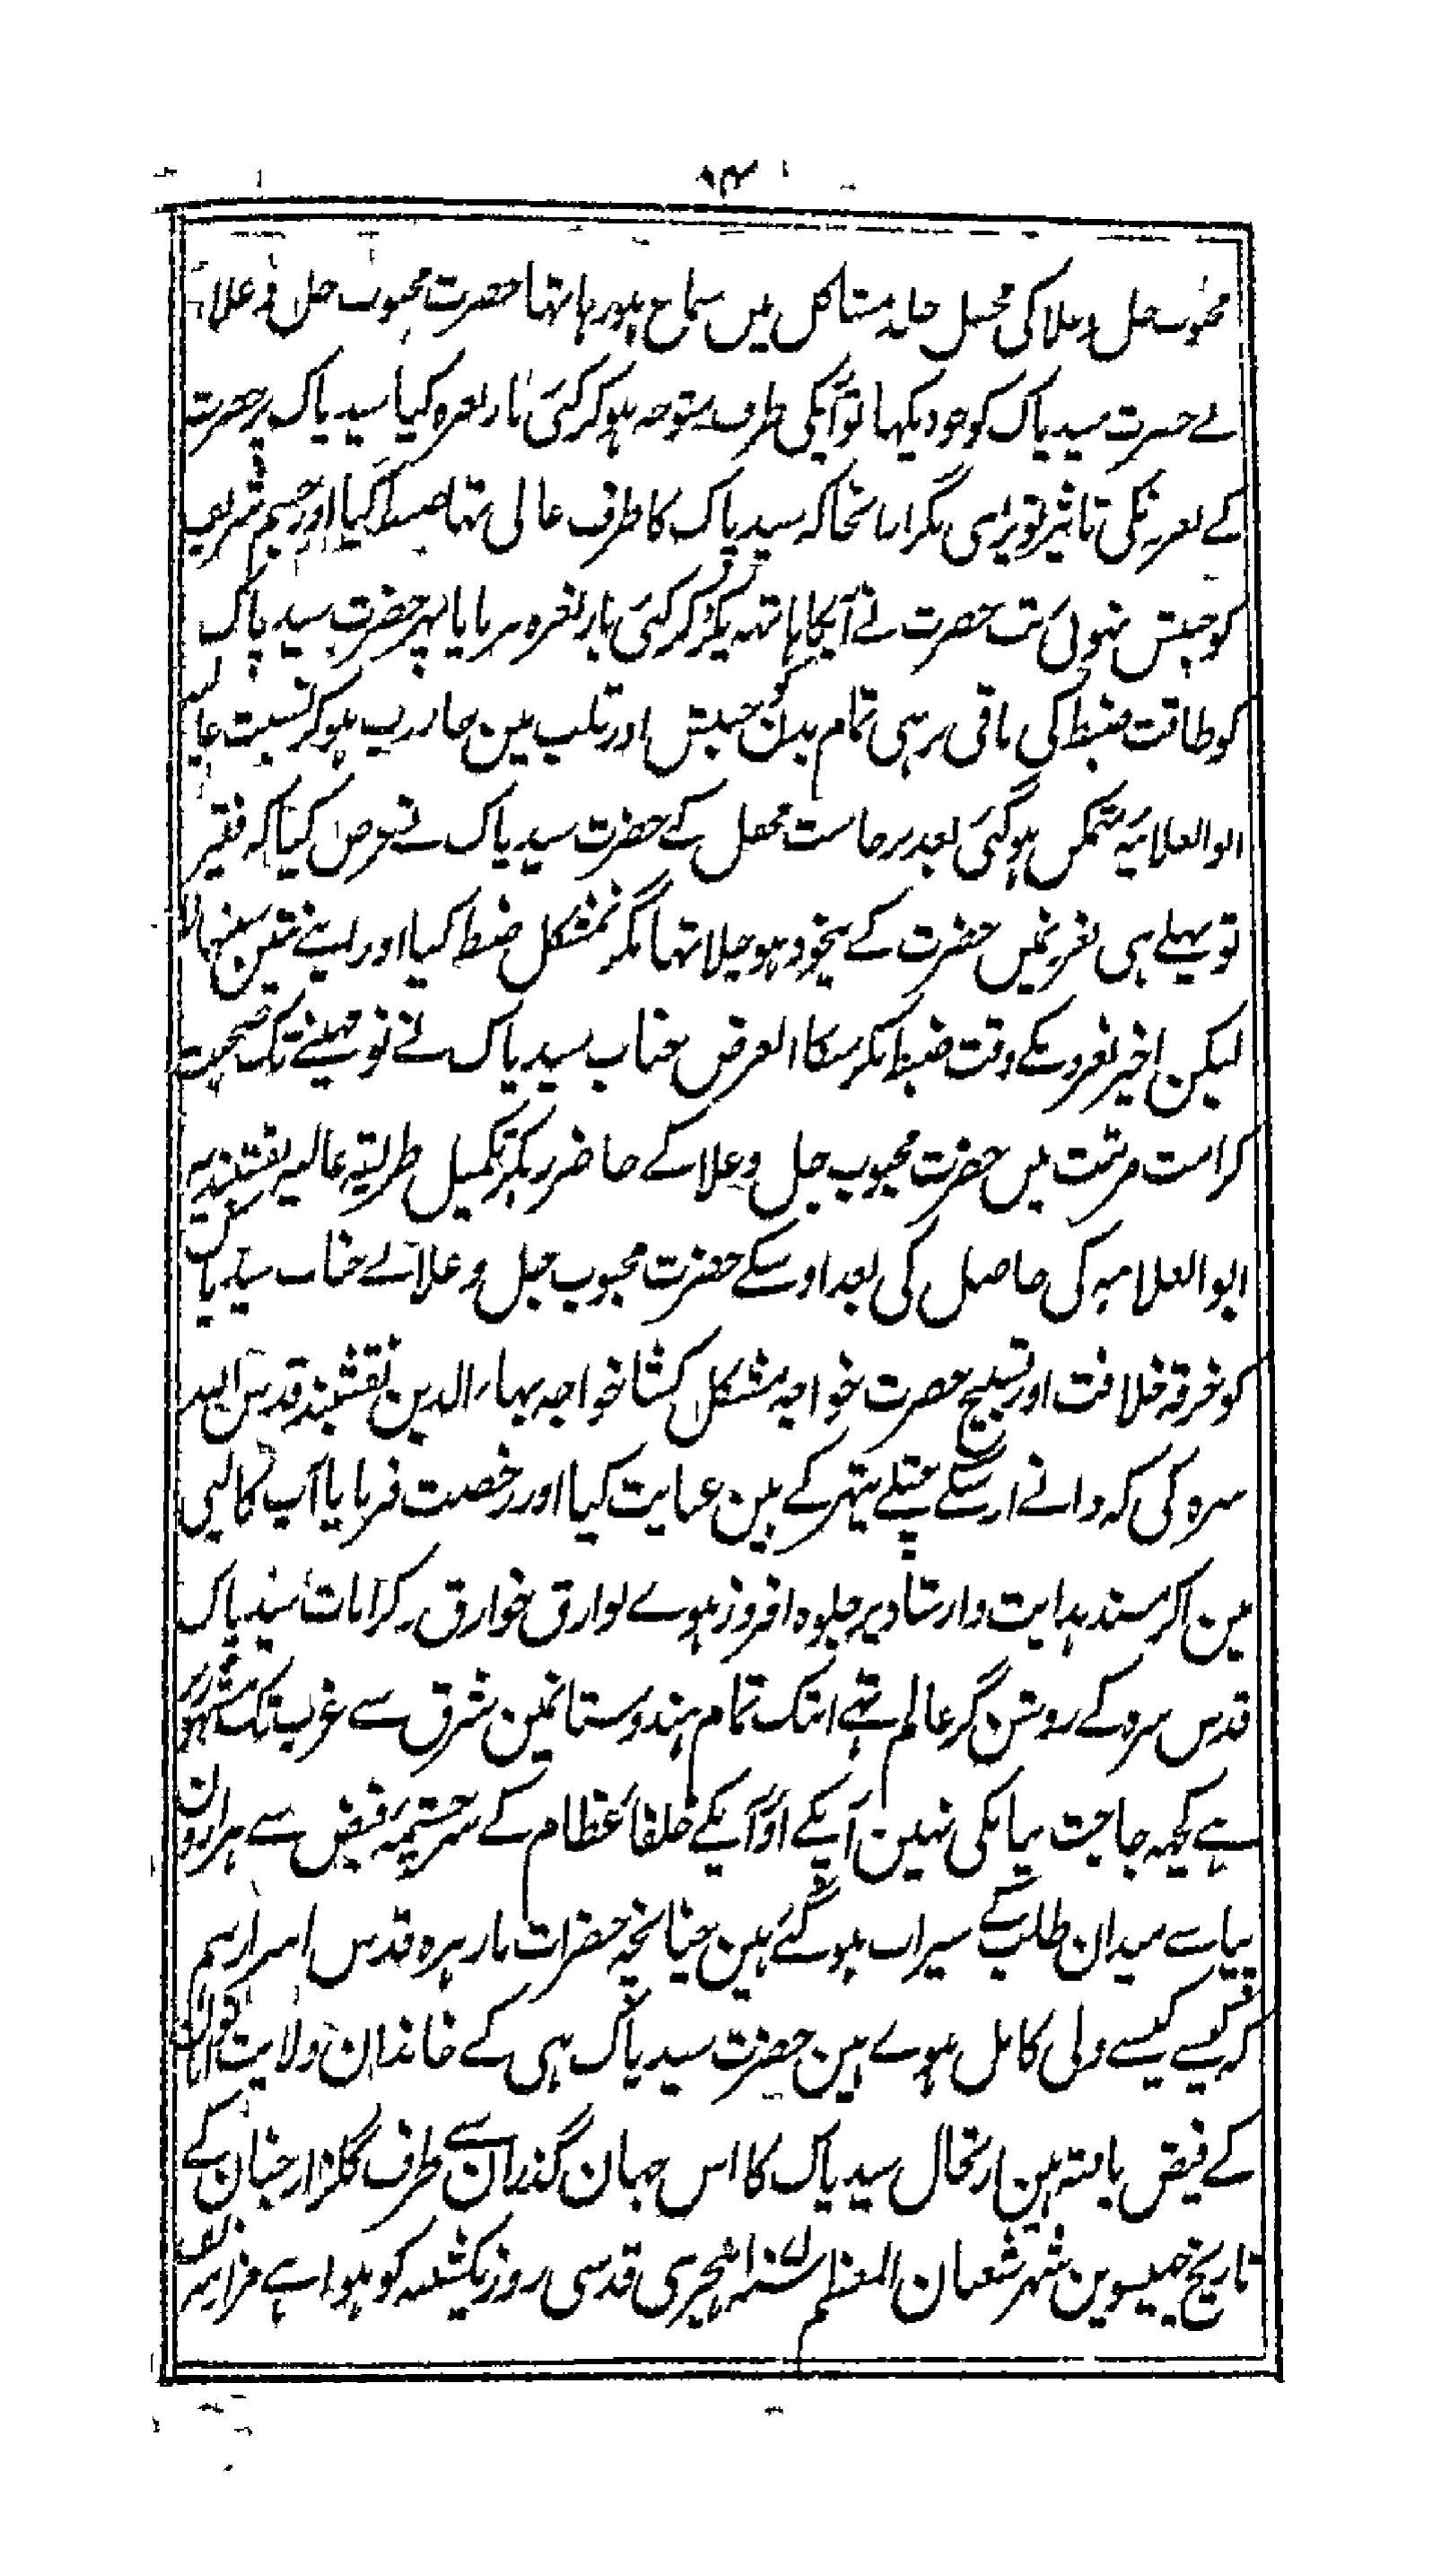 ۹۴
محبوب جل وعلا کی محفل میں سماع ہورہا تہا حضرت محبوب جل وعلا
نے حضرت سید پاک کو جو دیکہا تو آپکی طرف متوجہ ہوکر کئی بار نعرہ کیا سید پاک پر حضرت
کے نعرونکی تاثیر تو بڑی مگر ازانجا کہ سید پاک کا ظرف عالی تہا ضبط کیا اور جسم شریف
کو جنبش نہوئی تب حضرت نے آپکا ہاتہہ پکڑ کر کئی بار نعرہ فرمایا پہر حضرت سید پاک
کو طاقت ضبط کی باقی نرہی تمام بدن کو جنبش اور قلب مین جاری ہوکر نسبت عالیہ
ابوالعلائیہ متمکن ہوگئی بعد برخاست محفل کے حضرت سید پاک نے عرض کیا کہ فقیر
تو پہلے ہی نعرہ میں حضرت کے بیخود ہوچلا تہا مگر بمشکل ضبط کیا اور اپنے تئین سنبہالا
لیکن اخیر نعرہ کے وقت ضبط نکرسکا الغرض جناب سید پاک نے نو مہینے تک صحبت
کرامت مرتبت میں حضرت محبوب جل وعلا کے حاضر رہکر تکمیل طریقہ عالیہ نقشبندیہ
ابوالعلائیہ کی حاصل کی بعد اوسکے حضرت محبوب جل وعلا نے جناب سید پاک
کو خرقہ خلافت اور تسبیح حضرت خواجہ مشکل کشا خواجہ بہاء الدین نقشبند قدس اللہ
سرہ کی کہ دانے اوسکے پتہر کے ہین عنایت کیا اور رخصت فرمایا آپ کالپی
مین آکر مسند ہدایت وارشاد پر جلوہ افروز ہوے لوارق خوارق وکرامات سید پاک
قدس سرہ کے روشن گر عالم تہے ابتک تمام ہندوستانمین شرق سے غرب تک مشہور
ہے کچہہ حاجت بیانکی نہین آپکے اور آپکے خلفاء عظام کے سرچشمہ فیض سے ہزارون
پیاسے میدان طلب کے سیراب ہوگئے ہین چنانچہ حضرات مارہرہ قدس اسرارہم
کہ کیسے کیسے ولی کامل ہوے ہین حضرت سید پاک ہی کے خاندان ولایت
کے فیض یافتہ ہین ارتحال سید پاک کا اس جہان گذران سے طرف گلزار جنان کے
تاریخ چہبیسوین شہر شعبان المعظم ہجری قدسی روز یکشنبہ کو ہوا ہے مزار